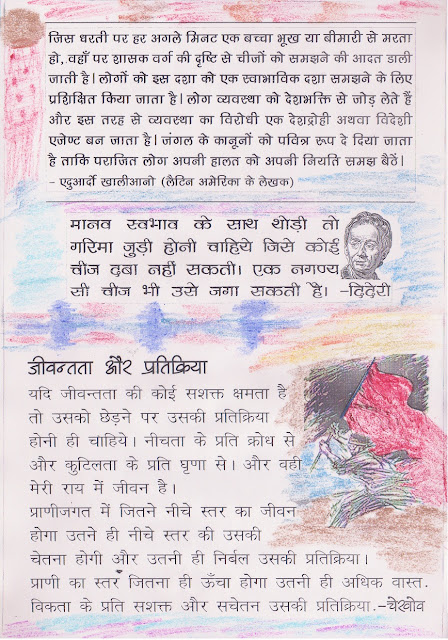 जिस धरती पर हर अगले मिनट एक बच्चा भूख या बीमारी से मरता
हो, वहाँ पर शासक वर्ग की दृष्टि से चीजों को समझने की आदत डाली
जाती है। लोगों को इस दशा को एक स्वाभाविक दशा समझने के लिए
प्रशिक्षित किया जाता है। लोग व्यवस्था को देशभक्ति से जोड़ लेते हैं
और इस तरह से व्यवस्था का विरोधी एक देशद्रोही अथवा विदेशी
एजेण्ट बन जाता है। जंगल के कानूनों को पवित्र रूप दे दिया जाता
है ताकि पराजित लोग अपनी हालत को अपनी नियति समझ बैठें।
- एदुआर्दो खालीआनो (लैटिन अमेरिका के लेखक)
मानव स्वभाव के साथ थोड़ी तो
गरिमा जुड़ी होनी चाहिये जिसे कोई
चीज दबा नहीं सकती। एक नगण्य
सी चीज भी उसे जगा सकती है। -दिदेरी
जीवन्तता और प्रतिक्रिया
यदि जीवन्तता की कोई सशक्त क्षमता है
तो उसको छेड़ने पर उसकी प्रतिक्रिया
होनी ही चाहिये। नीचता के प्रति क्रोध से
और कुटिलता के प्रति घृणा से। और वही
मेरी राय में जीवन है।
प्राणीजगत में जितने नीचे स्तर का जीवन
होगा उतने ही नीचे स्तर की उसकी
चेतना होगी और उतनी ही निर्बल उसकी प्रतिक्रिया।
प्राणी का स्तर जितना ही ऊँचा होगा उतनी ही अधिक वास्त.
विकता के प्रति सशक्त और सचेतन उसकी प्रतिक्रिया.-चेखोव